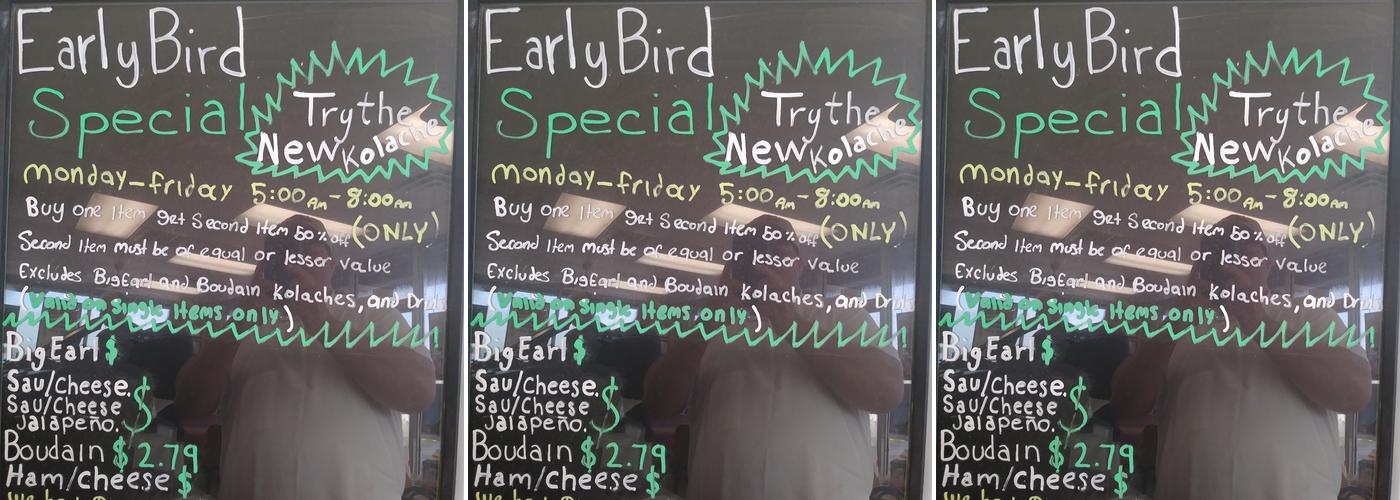 Early Bird
Special
Try the
New Kolache
monday-friday 5:00 Am - 8:00 Am
Buy one Item get Second Item 50% off (ONLY)
Second Item must be of equal or lesser value
Excludes BigEarl and Boudain Kolaches, and
(Valid on Single Items, only)
Big Earl $
Sau/Cheese. $
Sau/Cheese
Jalapeño.
Boudain $2.79
Ham/Cheese $
Early Bird
Special
Try the
New Kolache
monday-friday 5:00 Am - 8:00 Am
Buy one Item get Second Item 50% off (ONLY)
Second Item must be of equal or lesser value
Excludes BigEarl and Boudain Kolaches, and
(Valid on Single Items, only)
Big Earl $
Sau/Cheese. $
Sau/Cheese
Jalapeño.
Boudain $2.79
Ham/Cheese $
Early Bird
Special
Try the
New Kolache
monday-friday 5:00 Am - 8:00 Am
Buy one Item get Second Item 50% off (ONLY)
Second Item must be of equal or lesser value
Excludes BigEarl and Boudain Kolaches, and
(Valid on Single Items, only)
Big Earl $
Sau/Cheese. $
Sau/Cheese
Jalapeño.
Boudain $2.79
Ham/Cheese $